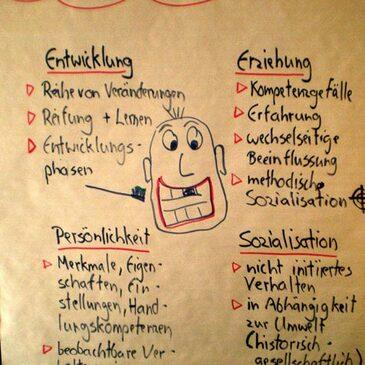 Entwicklung
Reihe von Veränderungen
Reifung + Lernen
Entwicklungs-
phasen
Erziehung
Kompetenzgefälle
Erfahrung
wechselseitige
Beeinflussung
methodische
Sozialisation
Persönlichkeit
Merkmale, Eigen-
schaften, Ein-
stellungen, Hand-
lungskompetenzen
beobachtbare Ver-
Sozialisation
nicht initiiertes
Verhalten
in Abhängigkeit
zur Umwelt
(historisch-
gesellschaftlich)